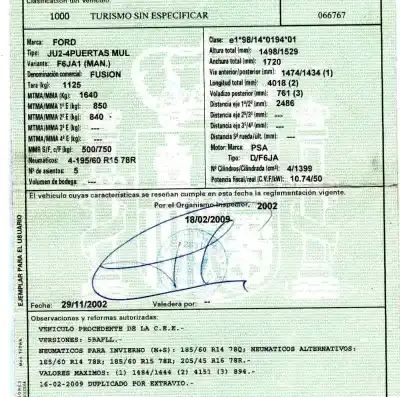 Clasificación del vehículo:
1000 TURISMO SIN ESPECIFICAR 066767
Marca: FORD
Tipo: JU2-4PUERTAS MUL
Variante: F6JA1 (MAN.)
Denominación comercial: FUSION
Tara (kg): 1125
MTMA/MMA (Kg) 1640
MTMA/MMA 1º E (kg) 850
MTMA/MMA 2º E (kg) 840
MTMA/MMA 3º E (kg) ---
MTMA/MMA 4º E (kg) ---
MMR S/F, c/F (kg): 500/750
Neumáticos: 4-195/60 R15 78R
Nº de asientos: 5
Volumen de bodega: ---
Clase: e1*98/14*0194*01
Altura total (mm): 1498/1529
Anchura total (mm): 1720
Vía anterior/posterior (mm): 1474/1434 (1)
Longitud total (mm): 4018 (2)
Voladizo posterior (mm): 761 (3)
Distancia eje 1º/2º (mm) 2486
Distancia eje 2º/3º (mm) ---
Distancia eje 3º/4º (mm) ---
Distancia 5ª rueda/últ. (mm): ---
Motor: Marca: PSA
Tipo: D/F6JA
Nº Cilindros/Cilindrada (cm³): 4/1399
Potencia fiscal/real (C.V.F/kW): 10.74/50
El vehículo cuyas características se reseñan cumple en esta fecha la reglamentación vigente.
Por el Organismo Inspector, 2002
18/02/2009
EJEMPLAR PARA EL USUARIO
Fecha: 29/11/2002 Valedera por: --
Observaciones y reformas autorizadas:
VEHICULO PROCEDENTE DE LA C.E.E.-
VERSIONES: 5BAFLL.-
NEUMATICOS PARA INVIERNO (M+S): 185/60 R14 78Q; NEUMATICOS ALTERNATIVOS:
185/60 R14 78R; 185/60 R15 78R; 205/45 R16 78R.-
VALORES MAXIMOS: (1) 1484/1444 (2) 4151 (3) 894.-
16-02-2009 DUPLICADO POR EXTRAVIO.-